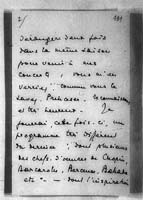 2/
déranger deux fois
dans la même saison
pour venir à nos
concerts, vous m'en
verriez, comme vous le
savez,
et très heureux. Je
jouerai cette fois-ci, un
programme très différent
du dernier ; dont plusieurs
des chefs-d'œuvres de Chopin,
Barcarolle, Berceuse, Ballade
etc. — dont l'inspiration